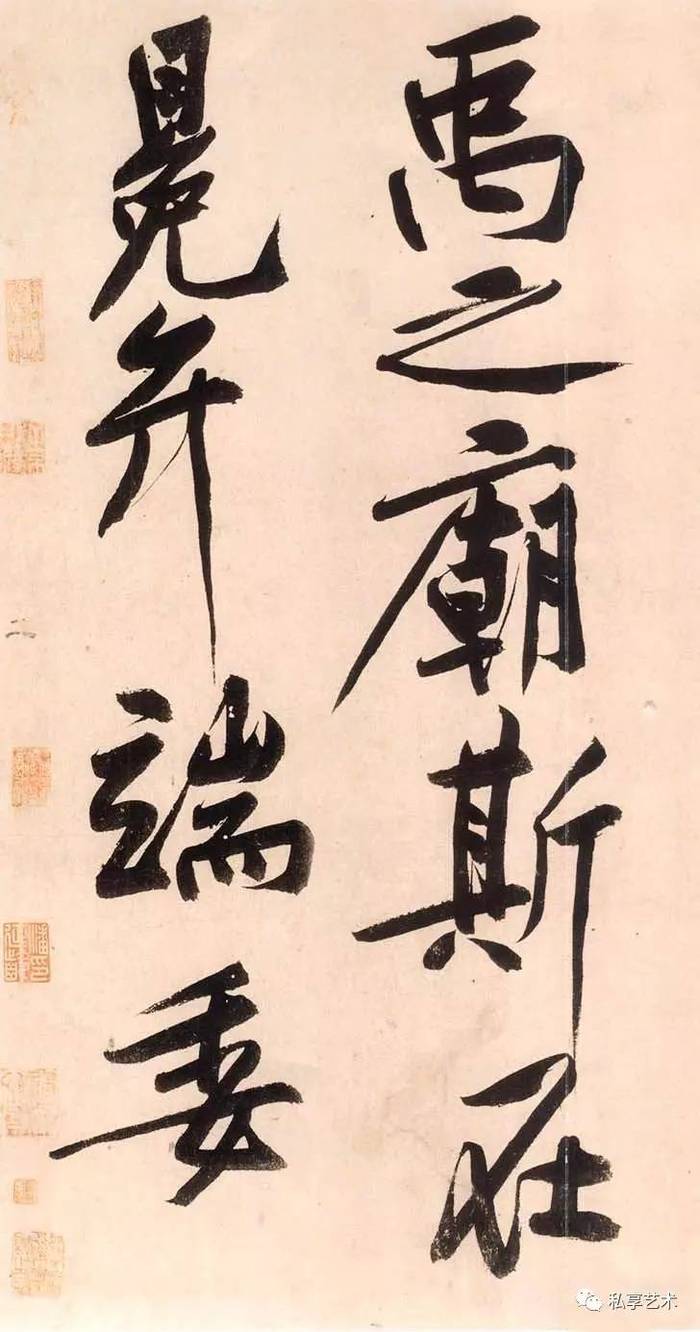 禹之廟斯在
冕弁端委
二
私享艺术